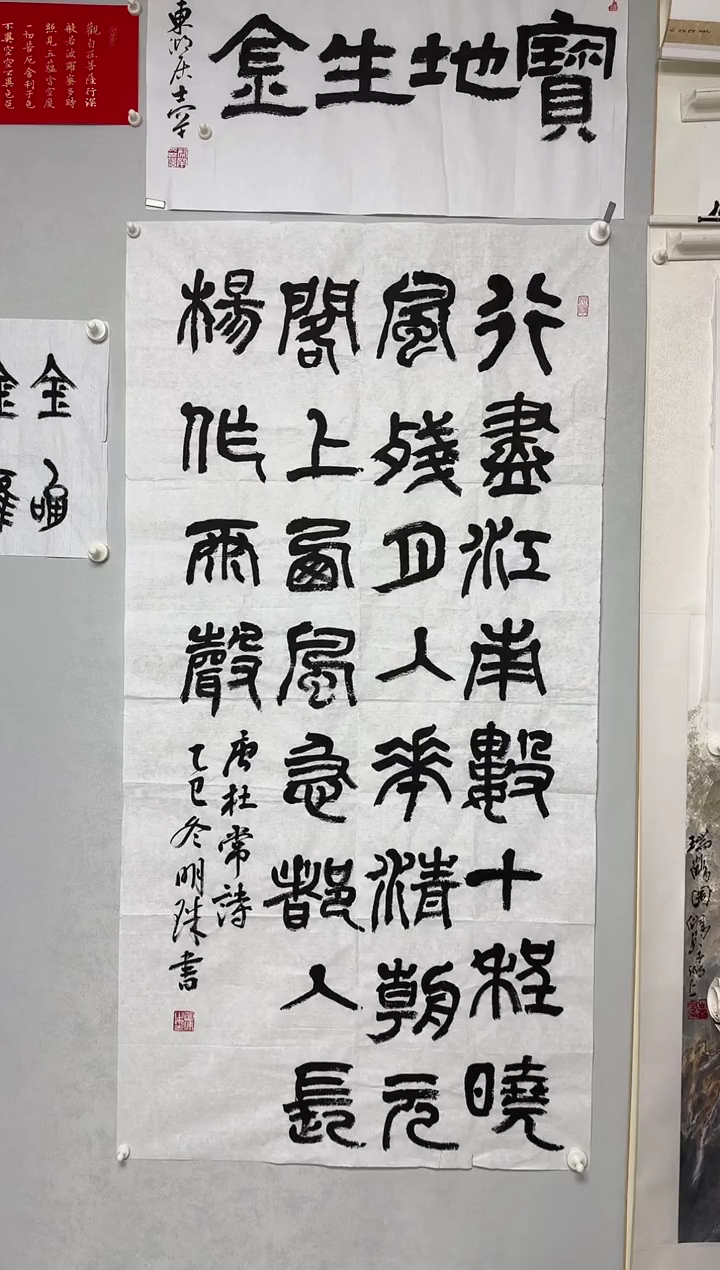 觀自在菩薩行深
般若波羅蜜多時
照見五蘊皆空度
一切苦厄舍利子色
不異空空不異色色
寶地生金
東湖居士
行盡江南數十程曉
風殘月入華清朝元
閣上西風急都入長
楊作雨聲
唐杜常詩
乙巳冬明珠書
金
瑞鶴圖